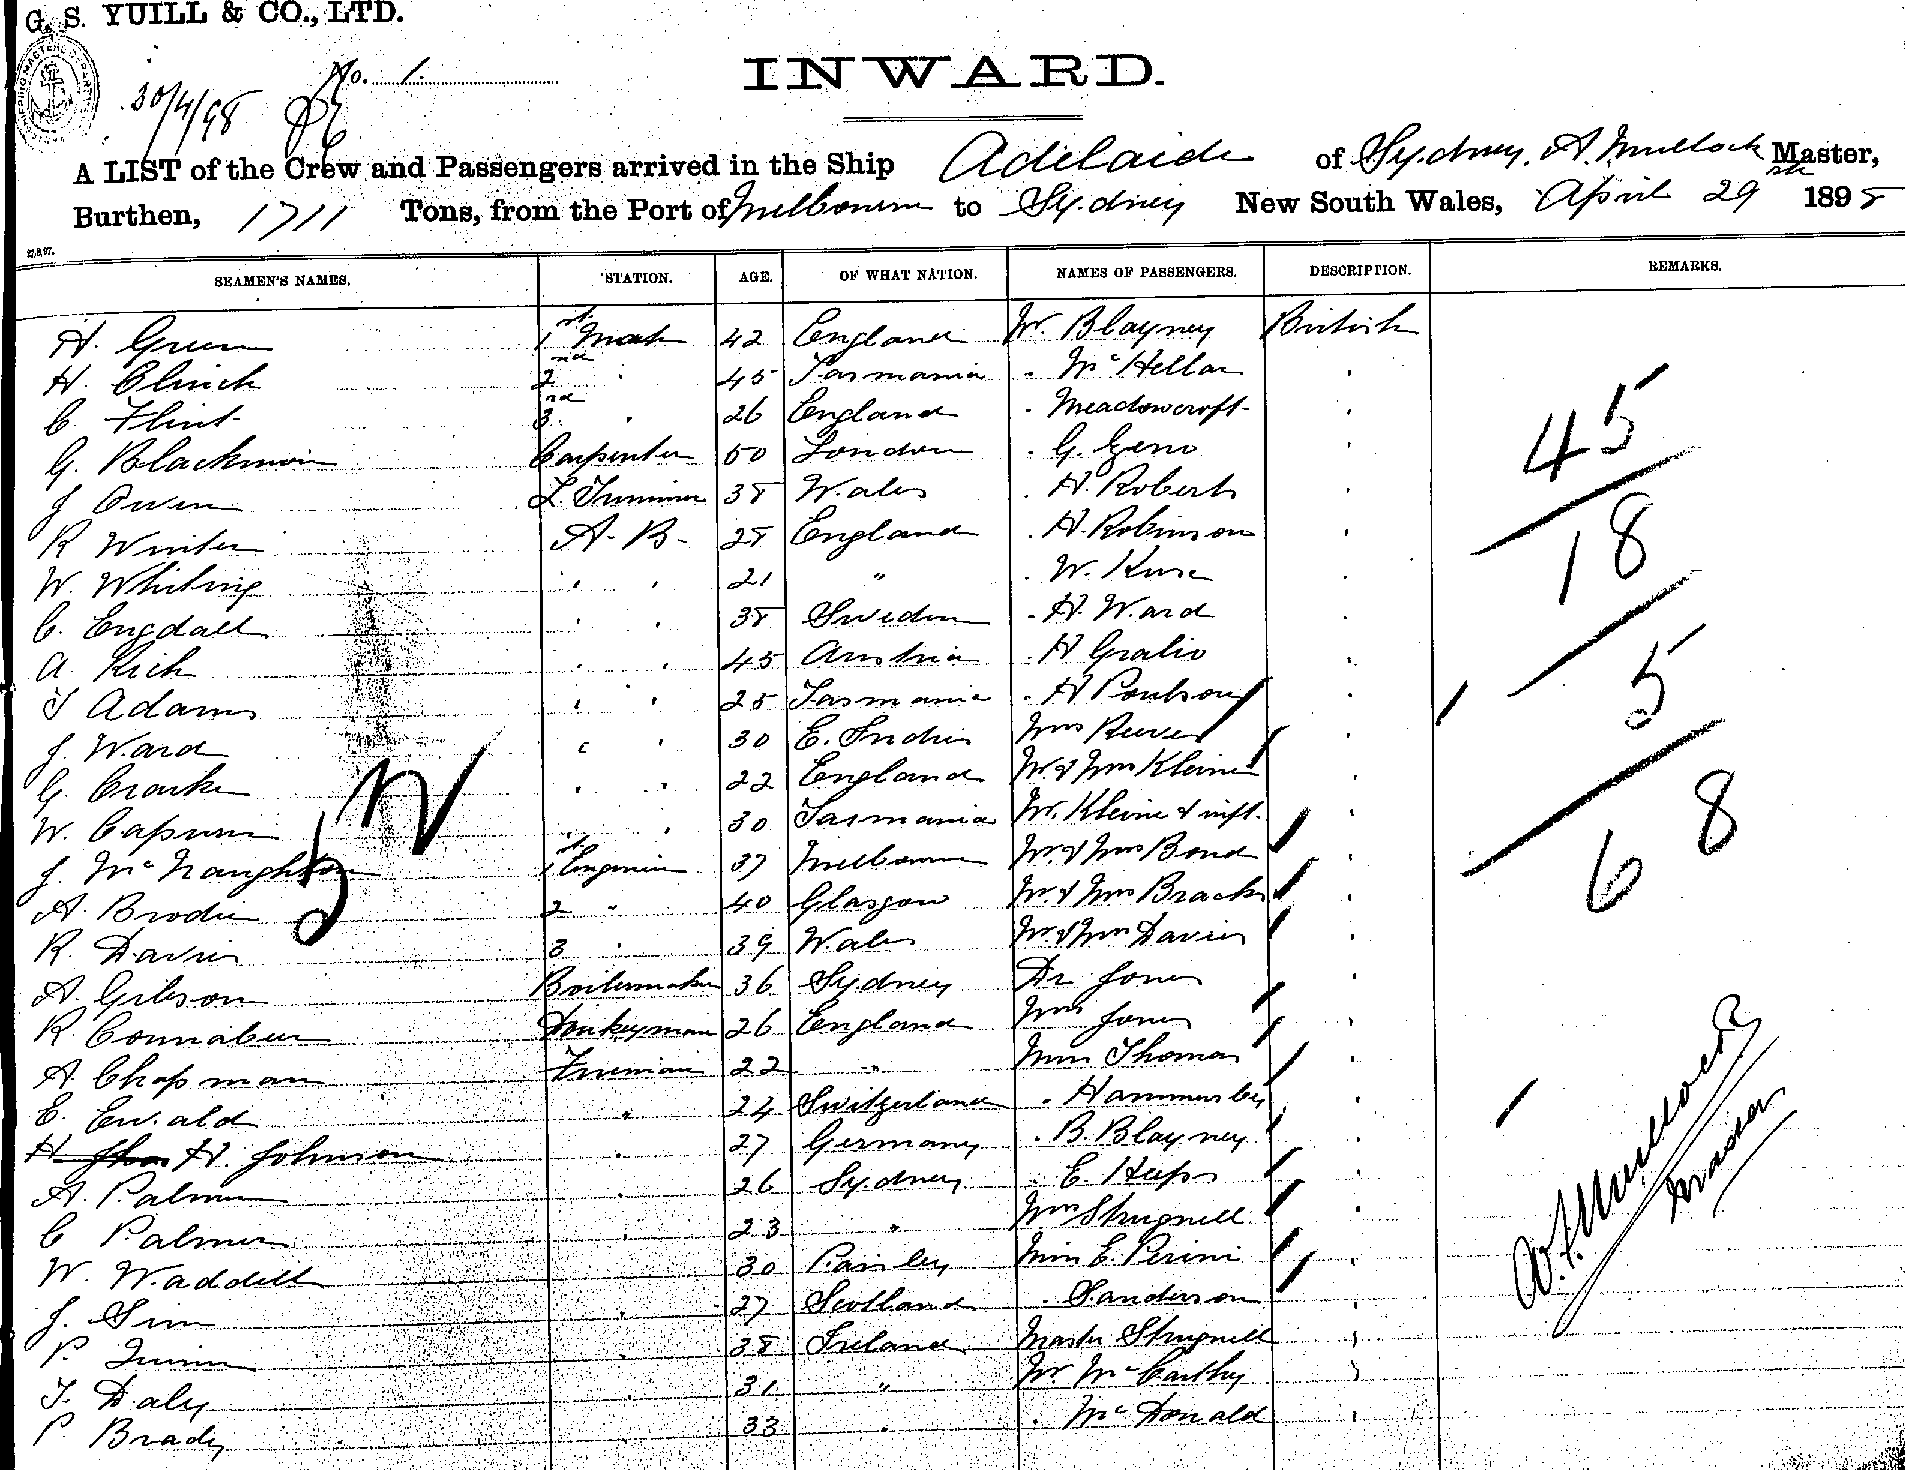 G. S. YUILL & CO., LTD.
No. 1.
30/4/98
INWARD.
A LIST of the Crew and Passengers arrived in the Ship Adelaide of Sydney, A. Mullock Master,
Burthen, 1711 Tons, from the Port of Melbourne to Sydney New South Wales, April 29 1898
SEAMEN'S NAMES. STATION. AGE. OF WHAT NATION. NAMES OF PASSENGERS. DESCRIPTION. REMARKS.
H. Green 1st Mate 42 England Mr. Blayney British
H. Clinch 2nd " 45 Tasmania " McKellar "
C. Flint 3rd " 26 England " Meadowcroft "
G. Blackmoin Carpenter 50 London " G. Geno "
J Owen L. Trimmer 38 Wales " H. Roberts "
R Winter A. B. 28 England " H. Robinson "
W. Whiting " " 21 " " W. "
C. Engdall " " 38 Sweden " H. Ward "
A. Rich " " 45 Austria " H "
T Adams " " 25 Tasmania " H Poulson "
J. Ward " " 30 E. Indies Mrs Reeves "
G. Croaker " " 22 England Mr & Mrs Kleine "
W. Capurn " " 30 Tasmania Mr. Kleine & inft. "
J. McNaughton 1st Engineer 37 Melbourne Mr & Mrs Bond "
A. Brodie 2 " 40 Glasgow Mr & Mrs Bracks "
R. Davies 3 " 39 Wales Mr & Mrs Davies "
A. Gibson Boilermaker 36 Sydney Dr Jones "
R. Connabeer Donkeyman 26 England Mrs Jones "
A. Chapman Fireman 22 " Miss Thomas "
E. Ewald " 24 Switzerland " Hammersley "
H. Johnson " 27 Germany " B. Blayney "
A. Palmer " 26 Sydney " E. Heaps "
C Palmer " 23 " Mrs Shugnell "
W. Waddell " 30 Paisley Miss E. Perini "
J. Sim " 27 Scotland " Sanderson "
P. Quinn " 38 Ireland Master Shugnell "
T. Daly " 31 " Mr McCarthy "
P Brady " 33 " " McDonald "
45
18
5
68
A. Mullock
Master